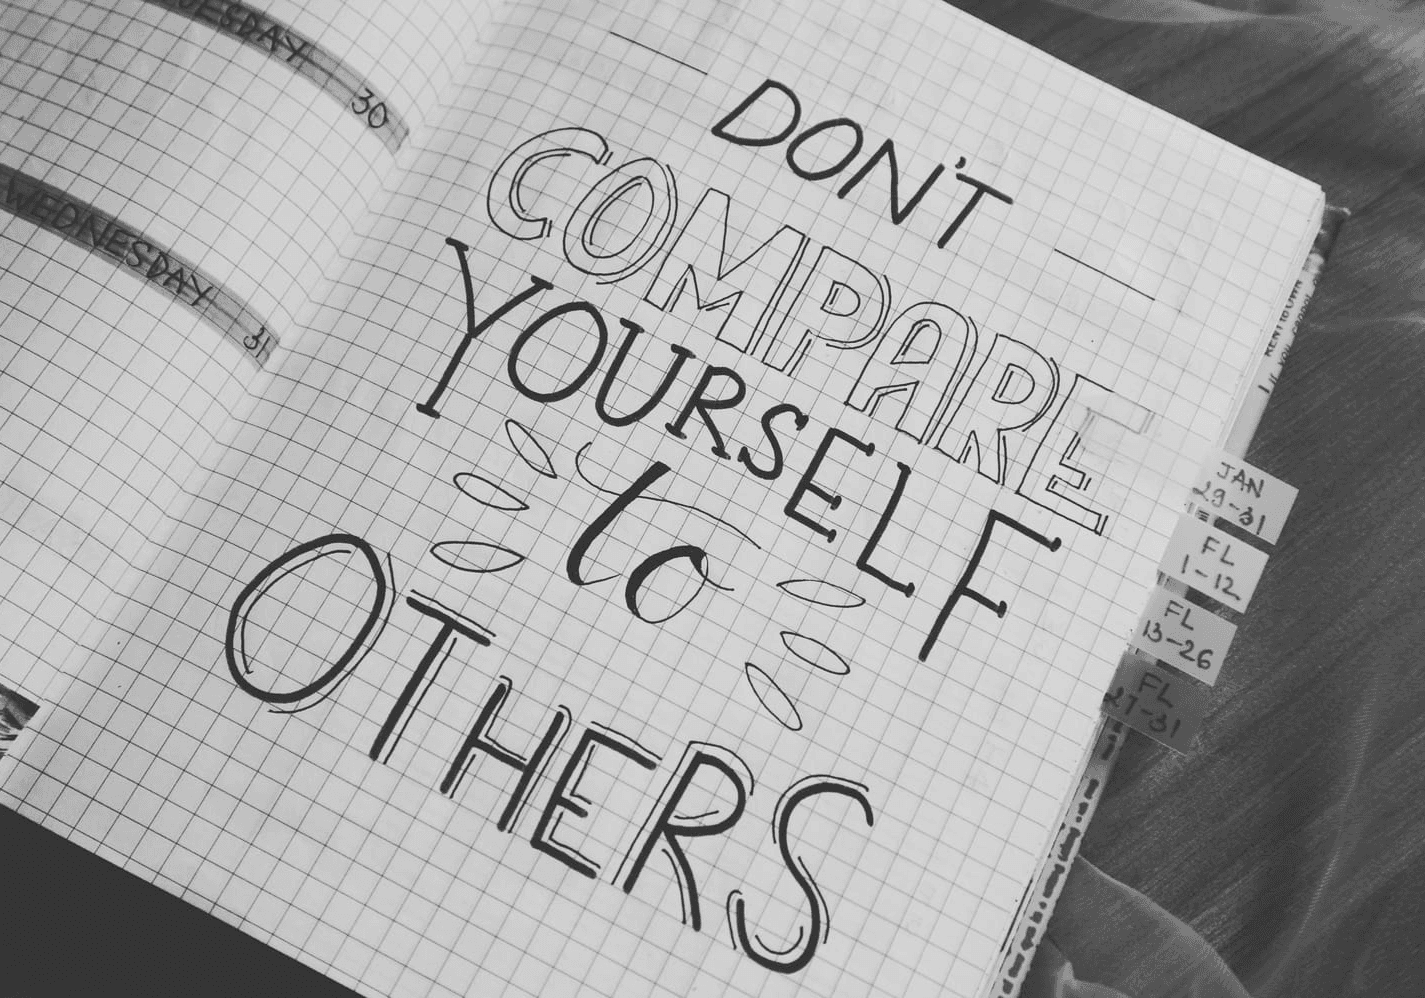 DON'T
COMPARE
YOURSELF
to
OTHERS
30
WEDNESDAY
31
JAN
29-31
FL
1-12
FL
13-26
FL
27-31